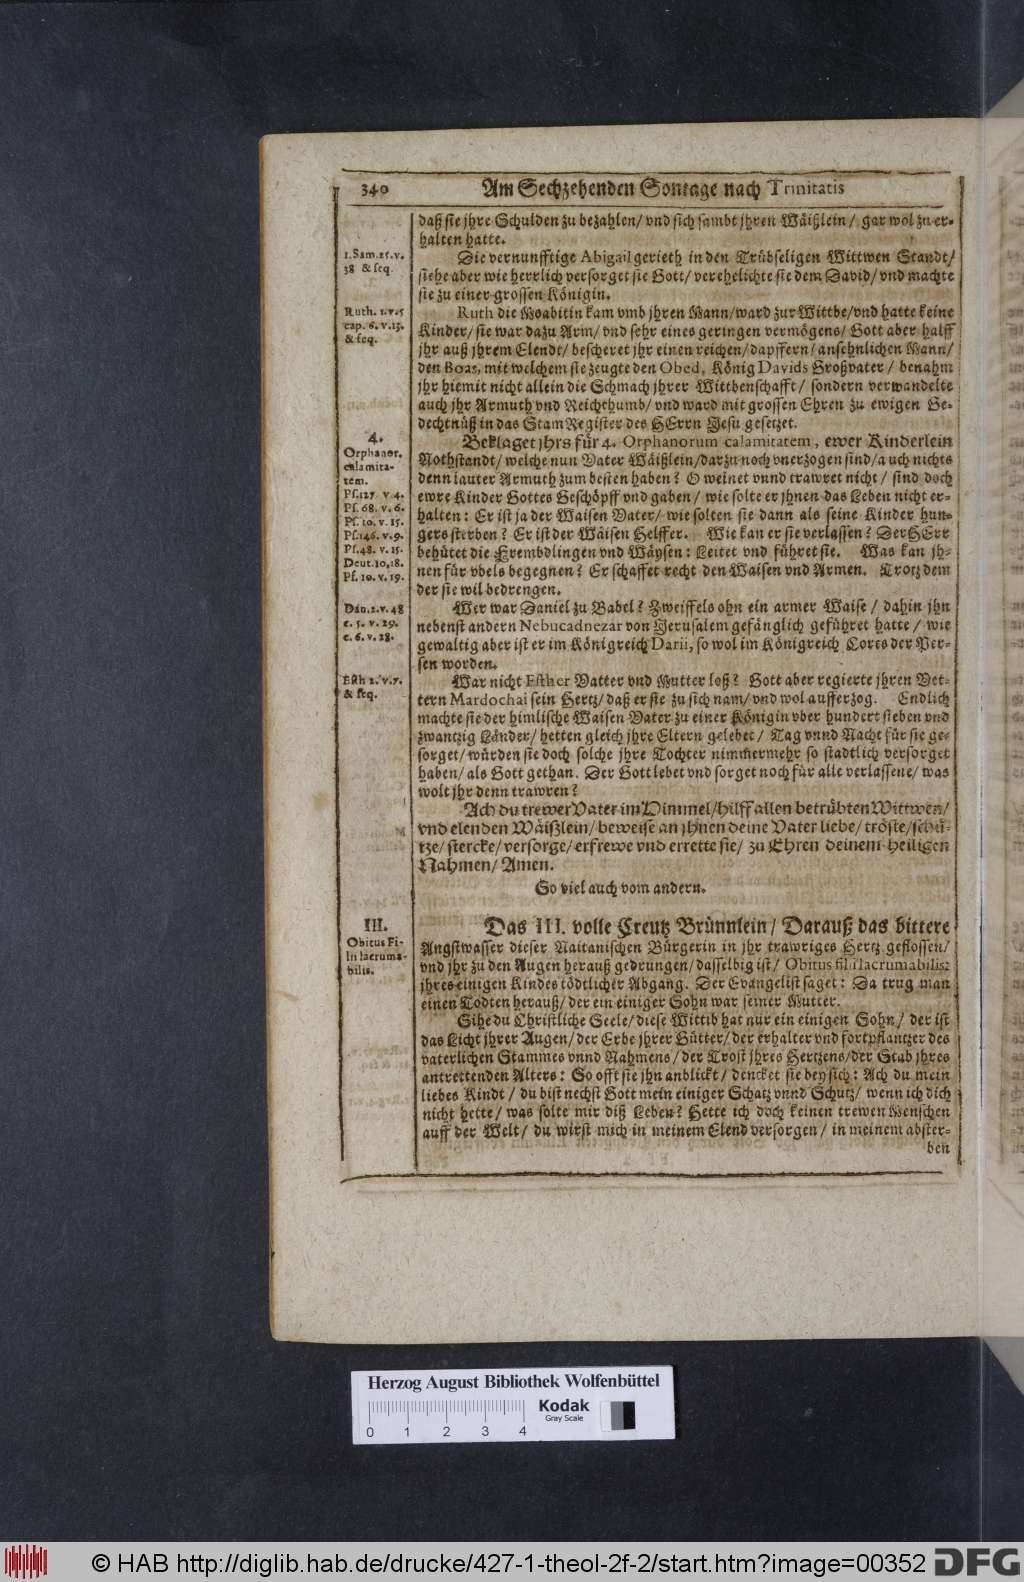 340 Am Sechzehenden Sontage nach Trinitatis
daß sie jhre Schulden zu bezahlen/ vnd sich sambt jhren Wäißlein/ gar wol zu er-
halten hatte.
1. Sam. 25. v.
38 & seq.
Die vernunfftige Abigail gerieth in den Trübseligen Wittwen Standt/
siehe aber wie herrlich versorget sie Gott/ verehelichte sie dem David/ vnd machte
sie zu einer grossen Königin.
Ruth. 1. v. 5
cap. 6. v. 13.
& seq.
Ruth die Moabitin kam vmb jhren Mann/ ward zur Wittbe/ vnd hatte keine
Kinder/ sie war dazu Arm/ vnd sehr eines geringen vermögens/ Gott aber halff
jhr auß jhrem Elendt/ bescheret jhr einen reichen/ dapffern/ ansehnlichen Mann/
den Boas, mit welchem sie zeugte den Obed, König Davids Großvater/ benahm
jhr hiemit nicht allein die Schmach jhrer Wittbenschafft/ sondern verwandelte
auch jhr Armuth vnd Reichthumb/ vnd ward mit grossen Ehren zu ewigen Ge-
dechtnüß in das Stam Register des HErrn Jesu gesetzet.
4.
Orphanor.
calamita-
tem.
Ps. 127. v 4.
Ps. 68. v. 6.
Ps. 10. v. 15.
Ps. 146. v. 9.
Ps. 48. v. 15.
Deut. 10, 18.
Ps. 10. v. 19.
Beklaget jhrs für 4. Orphanorum calamitatem, ewer Kinderlein
Nothstandt/ welche nun Vater Wäißlein/ darzu noch vnerzogen sind/ auch nichts
denn lauter Armuth zum besten haben? O weinet vnnd trawret nicht/ sind doch
ewre Kinder Gottes Geschöpff vnd gaben/ wie solte er jhnen das Leben nicht er-
halten: Er ist ja der Waisen Vater/ wie solten sie dann als seine Kinder hun-
gers sterben? Er ist der Wäisen Helffer. Wie kan er sie verlassen? Der HErr
behütet die Frembdlingen vnd Wäysen: Leitet vnd führet sie. Was kan jh-
nen für vbels begegnen? Er schaffet recht den Waisen vnd Armen. Trotz dem
der sie wil bedrengen.
Dan. 2. v. 48
c. 5. v. 29.
c. 6. v. 28.
Wer war Daniel zu Babel? Zweiffels ohn ein armer Waise/ dahin jhn
nebenst andern Nebucadnezar von Jerusalem gefänglich geführet hatte/ wie
gewaltig aber ist er im Königreich Darii, so wol im Königreich Cores der Per-
sen worden.
Esth 2. v. 7.
& seq.
War nicht Esther Vatter vnd Mutter loß? Gott aber regierte jhren Vet-
tern Mardochai sein Hertz/ daß er sie zu sich nam/ vnd wol aufferzog. Endlich
machte sie der himlische Waisen Vater zu einer Königin vber hundert sieben vnd
zwantzig Länder/ hetten gleich jhre Eltern gelebet/ Tag vnnd Nacht für sie ge-
sorget/ würden sie doch solche jhre Tochter nimmermehr so stadtlich versorget
haben/ als Gott gethan. Der Gott lebet vnd sorget noch für alle verlassene/ was
wolt jhr denn trawren?
Ach du trewer Vater im Himmel/ hilff allen betrübten Wittwen/
vnd elenden Wäißlein/ beweise an jhnen deine Vater liebe/ tröste/ schü-
tze/ stercke/ versorge/ erfrewe vnd errette sie/ zu Ehren deinem heiligen
Nahmen/ Amen.
So viel auch vom andern.
III.
Obitus Fi-
lii lacruma-
bilis.
Das III. volle Creutz Brünnlein/ Darauß das bittere
Angstwasser dieser Naitanischen Bürgerin in jhr trawriges Hertz geflossen/
vnd jhr zu den Augen herauß gedrungen/ dasselbig ist/ Obitus filii lacrumabilis:
jhres einigen Kindes tödtlicher Abgang. Der Evangelist saget: Da trug man
einen Todten herauß/ der ein einiger Sohn war seiner Mutter.
Sihe du Christliche Seele/ diese Wittib hat nur ein einigen Sohn/ der ist
das Licht jhrer Augen/ der Erbe jhrer Gütter/ der erhalter vnd fortpflantzer des
vaterlichen Stammes vnnd Nahmens/ der Trost jhres Hertzens/ der Stab jhres
antrettenden Alters: So offt sie jhn anblickt/ dencket sie bey sich: Ach du mein
liebes Kindt/ du bist nechst Gott mein einiger Schatz vnnd Schutz/ wenn ich dich
nicht hette/ was solte mir diß Leben? Hette ich doch keinen trewen Menschen
auff der Welt/ du wirst mich in meinem Elend versorgen/ in meinem abster-
ben
Herzog August Bibliothek Wolfenbüttel
Kodak
Gray Scale
0 1 2 3 4
© HAB http://diglib.hab.de/drucke/427-1-theol-2f-2/start.htm?image=00352 DFG